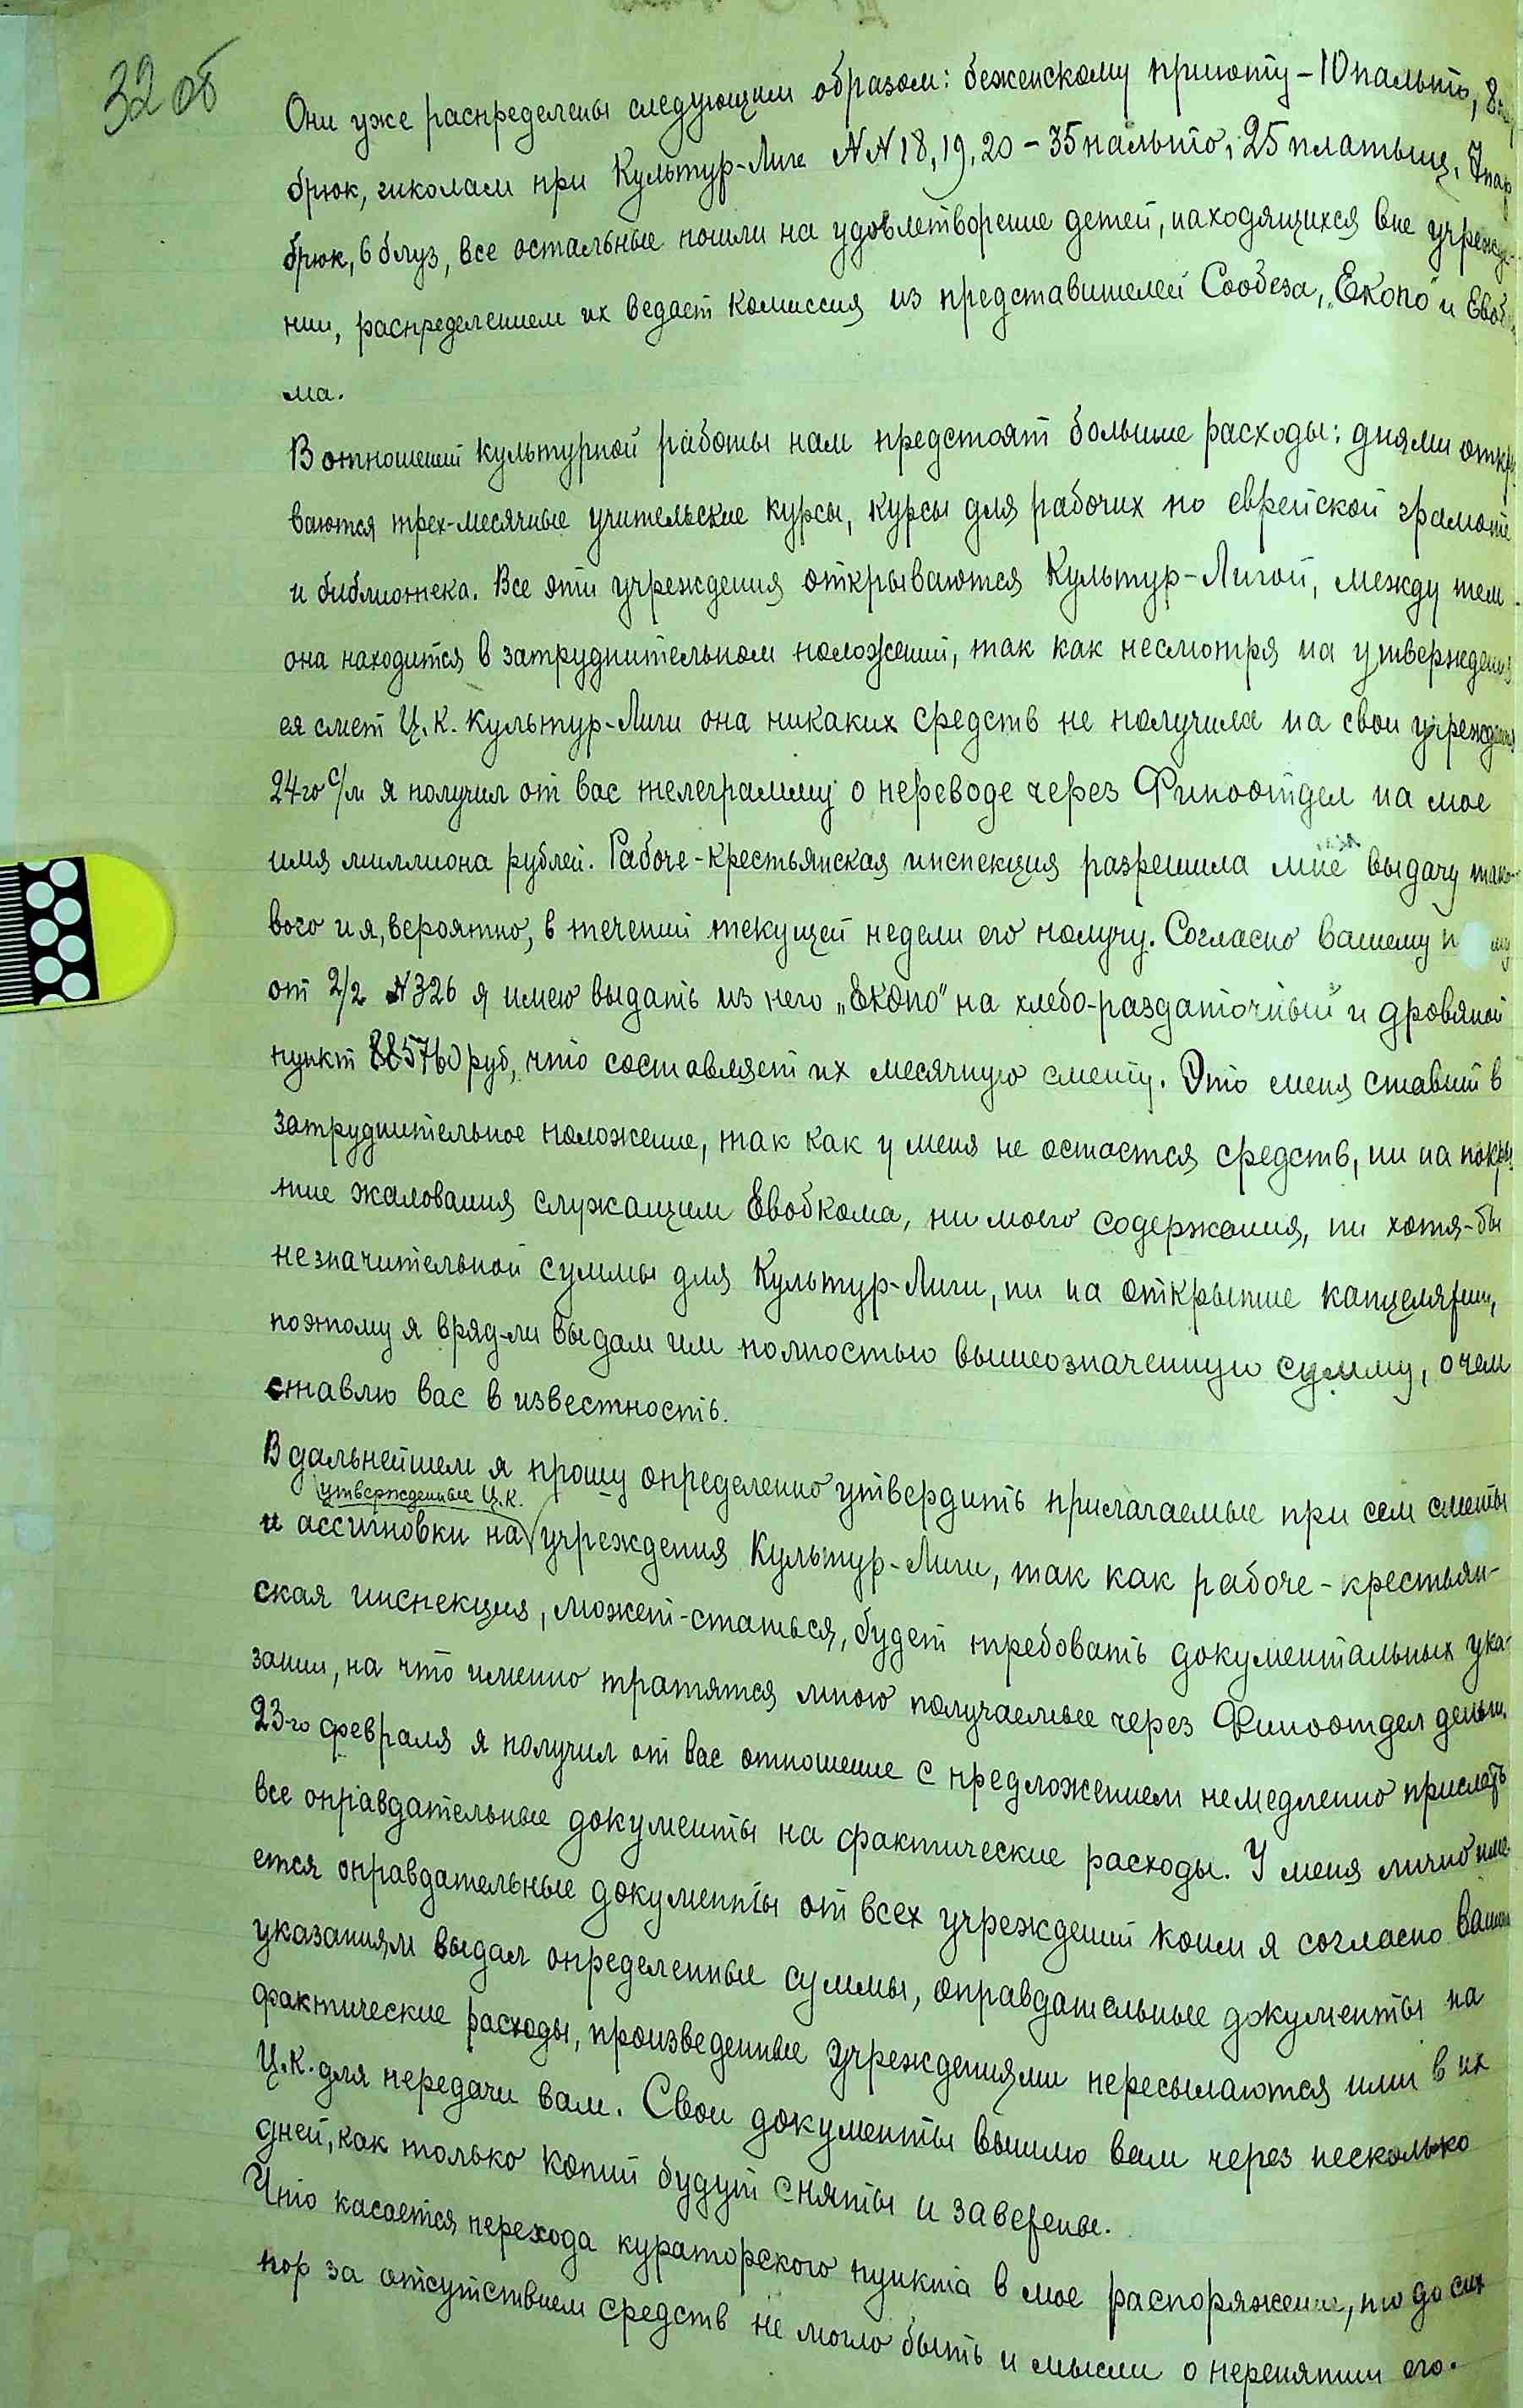 32 об
Они уже распределены следующим образом: беженскому приюту – 10 пальто, 8
брюк, школам при Культур-Лиге NN 18, 19, 20 – 35 пальто, 25 платьиц, 7 пар
брюк, 6 блуз, все остальные пошли на удовлетворение детей, находящихся вне учрежде-
нии, распределением их ведает комиссия из представителей Собеза, „Екопо" и Евоб
ма.
В отношении культурной работы нам предстоят большие расходы: днями откры
ваются трех-месячные учительские курсы, курсы для рабочих по еврейской грамоте
и библиотека. Все эти учреждения открываются Культур-Лигой, между тем
она находится в затруднительном положении, так как несмотря на утверждения
ея смет Ц.К. Культур-Лиги она никаких средств не получила на свои учреждения
24го с/м я получил от вас телеграмму о переводе через Финоотдел на мое
имя миллиона рублей. Рабоче-крестьянская инспекция разрешила мне выдачу тако-
вого и я, вероятно, в течении текущей недели его получу. Согласно вашему
от 2/2 N 326 я имею выдать из него „Екопо" на хлебо-раздаточный и дровяной
пункт 885760 руб, что составляет их месячную смету. Это меня ставит в
затруднительное положение, так как у меня не остается средств, ни на покры
тие жалования служащим Евобкома, ни моего содержания, ни хотя-бы
незначительной суммы для Культур-Лиги, ни на открытие канцелярии,
поэтому я вряд-ли выдам им полностью вышеозначенную сумму, о чем
ставлю вас в известность.
В дальнейшем я прошу определенно утвердить прилагаемые при сем сметы
утвержденные Ц.К.
и ассигновки на учреждения Культур-Лиги, так как рабоче-крестьян-
ская инспекция, может-статься, будет требовать документальных ука-
зании, на что именно тратятся мною получаемые через Финоотдел деньги.
23-го февраля я получил от вас отношение с предложением немедленно прислать
все оправдательные документы на фактические расходы. У меня лично име
ется оправдательные документы от всех учреждений коим я согласно вашим
указаниям выдал определенные суммы, оправдательные документы на
фактические расходы, произведенные учреждениями пересылаются ими в их
Ц.К. для передачи вам. Свои документы вышлю вам через несколько
дней, как только копии будут сняты и заверены.
Что касается перехода кураторского пункта в мое распоряжение, то до сих
пор за отсутствием средств не могло быть и мысли о перенятии его.